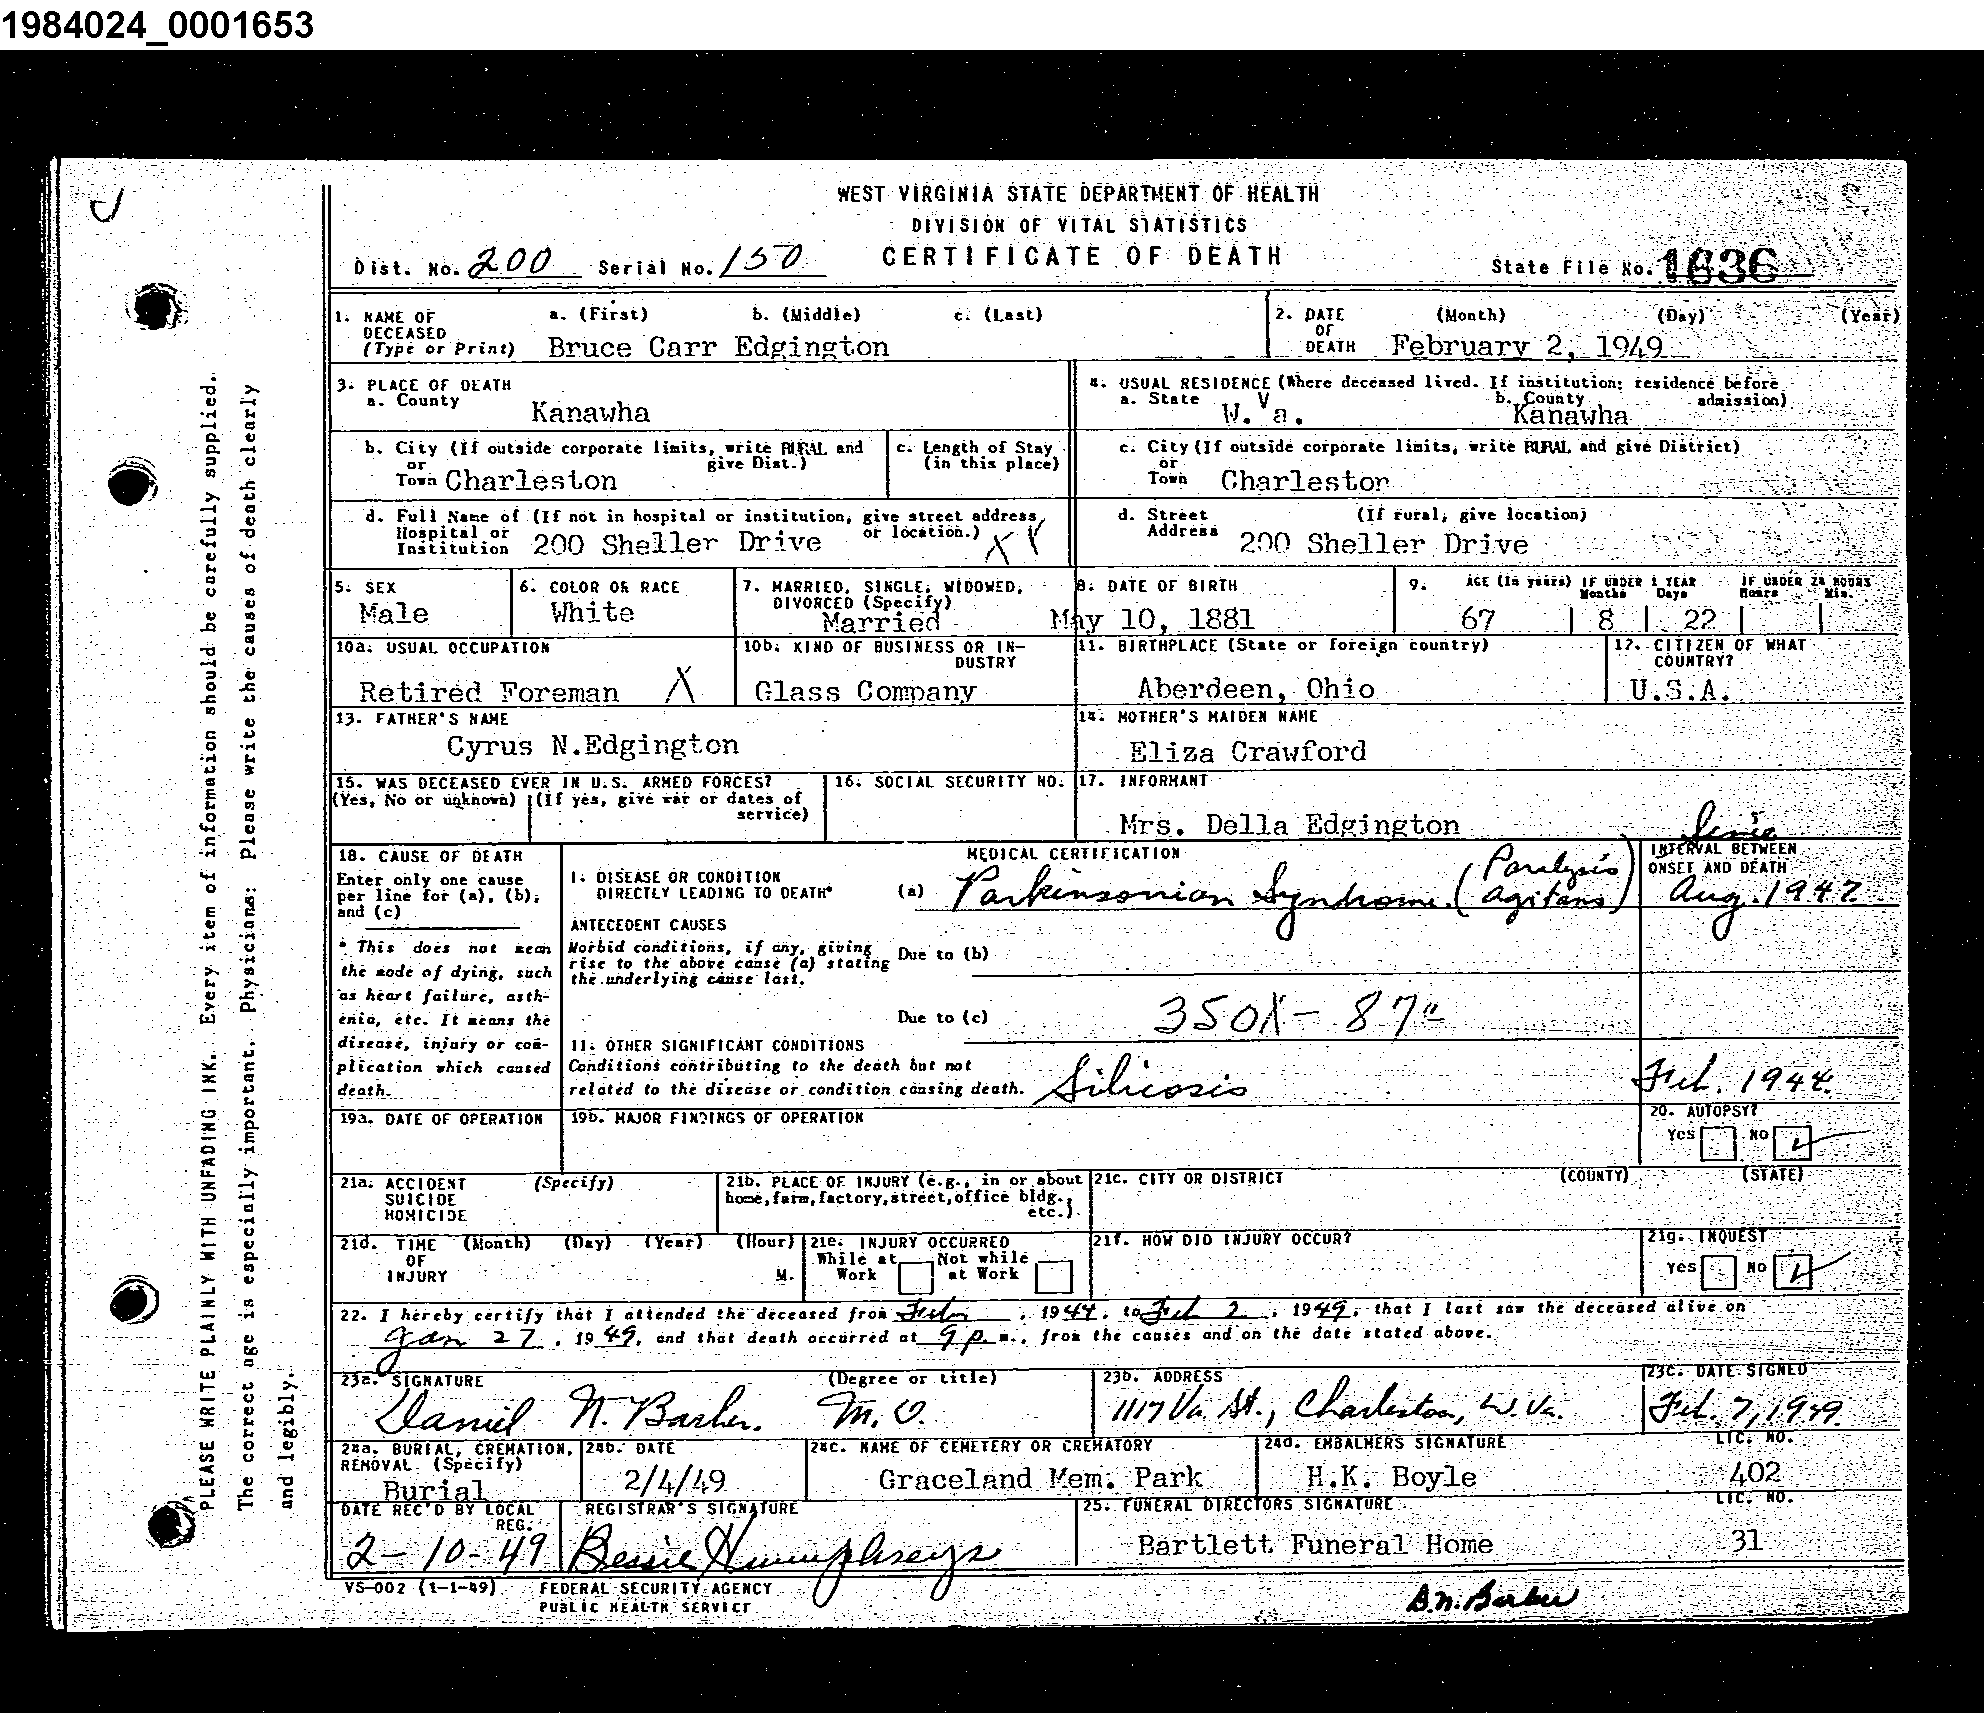 1984024_0001653
WEST VIRGINIA STATE DEPARTMENT OF HEALTH
DIVISION OF VITAL STATISTICS
CERTIFICATE OF DEATH
Dist. No. 200 Serial No. 150
State File No. 1636
1. NAME OF DECEASED (Type or Print) a. (First) b. (Middle) c. (Last)
Bruce Carr Edgington
2. DATE OF DEATH (Month) (Day) (Year)
February 2, 1949
3. PLACE OF DEATH
a. County
Kanawha
4. USUAL RESIDENCE (Where deceased lived. If institution: residence before admission)
a. State b. County
W. Va. Kanawha
b. City (If outside corporate limits, write RURAL and give Dist.)
or Town Charleston
c. Length of Stay (in this place)
c. City (If outside corporate limits, write RURAL and give District)
or Town Charleston
d. Full Name of (If not in hospital or institution, give street address or location.)
Hospital or Institution 200 Sheller Drive X
d. Street Address (If rural, give location)
200 Sheller Drive
5. SEX
Male
6. COLOR OR RACE
White
7. MARRIED, SINGLE, WIDOWED, DIVORCED (Specify)
Married
8. DATE OF BIRTH
May 10, 1881
9. AGE (in years) IF UNDER 1 YEAR Months Days IF UNDER 24 HOURS Hours Min.
67 8 22
10a. USUAL OCCUPATION
Retired Foreman X
10b. KIND OF BUSINESS OR INDUSTRY
Glass Company
11. BIRTHPLACE (State or foreign country)
Aberdeen, Ohio
12. CITIZEN OF WHAT COUNTRY?
U.S.A.
13. FATHER'S NAME
Cyrus N.Edgington
14. MOTHER'S MAIDEN NAME
Eliza Crawford
15. WAS DECEASED EVER IN U.S. ARMED FORCES?
(Yes, No or unknown) (If yes, give war or dates of service)
16. SOCIAL SECURITY NO.
17. INFORMANT
Mrs. Della Edgington
18. CAUSE OF DEATH
Enter only one cause per line for (a), (b), and (c)
* This does not mean the mode of dying, such as heart failure, asthenia, etc. It means the disease, injury or complication which caused death.
MEDICAL CERTIFICATION
I. DISEASE OR CONDITION DIRECTLY LEADING TO DEATH* (a) Parkinsonian Syndrome (Paralysis agitans)
INTERVAL BETWEEN ONSET AND DEATH
Since
Aug. 1947
ANTECEDENT CAUSES
Morbid conditions, if any, giving rise to the above cause (a) stating the underlying cause last.
Due to (b)
Due to (c) 350X - 87
11. OTHER SIGNIFICANT CONDITIONS
Conditions contributing to the death but not related to the disease or condition causing death. Silicosis
Feb. 1944
19a. DATE OF OPERATION
19b. MAJOR FINDINGS OF OPERATION
20. AUTOPSY?
Yes No ✓
21a. ACCIDENT SUICIDE HOMICIDE (Specify)
21b. PLACE OF INJURY (e.g., in or about home, farm, factory, street, office bldg., etc.)
21c. CITY OR DISTRICT (COUNTY) (STATE)
21d. TIME OF INJURY (Month) (Day) (Year) (Hour) M.
21e. INJURY OCCURRED
While at Work Not while at Work
21f. HOW DID INJURY OCCUR?
21g. INQUEST
Yes No ✓
22. I hereby certify that I attended the deceased from Feb, 1944, to Feb 2, 1949, that I last saw the deceased alive on
Jan 27, 1949, and that death occurred at 9 p.m., from the causes and on the date stated above.
23a. SIGNATURE (Degree or title)
Daniel N. Barber. M.D.
23b. ADDRESS
1117 Va. St., Charleston, W. Va.
23c. DATE SIGNED
Feb. 7, 1949
24a. BURIAL, CREMATION, REMOVAL (Specify)
Burial
24b. DATE
2/4/49
24c. NAME OF CEMETERY OR CREMATORY
Graceland Mem. Park
24d. EMBALMERS SIGNATURE LIC. NO.
H.K. Boyle 402
DATE REC'D BY LOCAL REG.
2-10-49
REGISTRAR'S SIGNATURE
Bessie Humphreys
25. FUNERAL DIRECTORS SIGNATURE LIC. NO.
Bartlett Funeral Home 31
VS-002 (1-1-49) FEDERAL SECURITY AGENCY
PUBLIC HEALTH SERVICE
D.N. Barber
PLEASE WRITE PLAINLY WITH UNFADING INK. Every item of information should be carefully supplied.
The correct age is especially important. Physicians: Please write the causes of death clearly
and legibly.